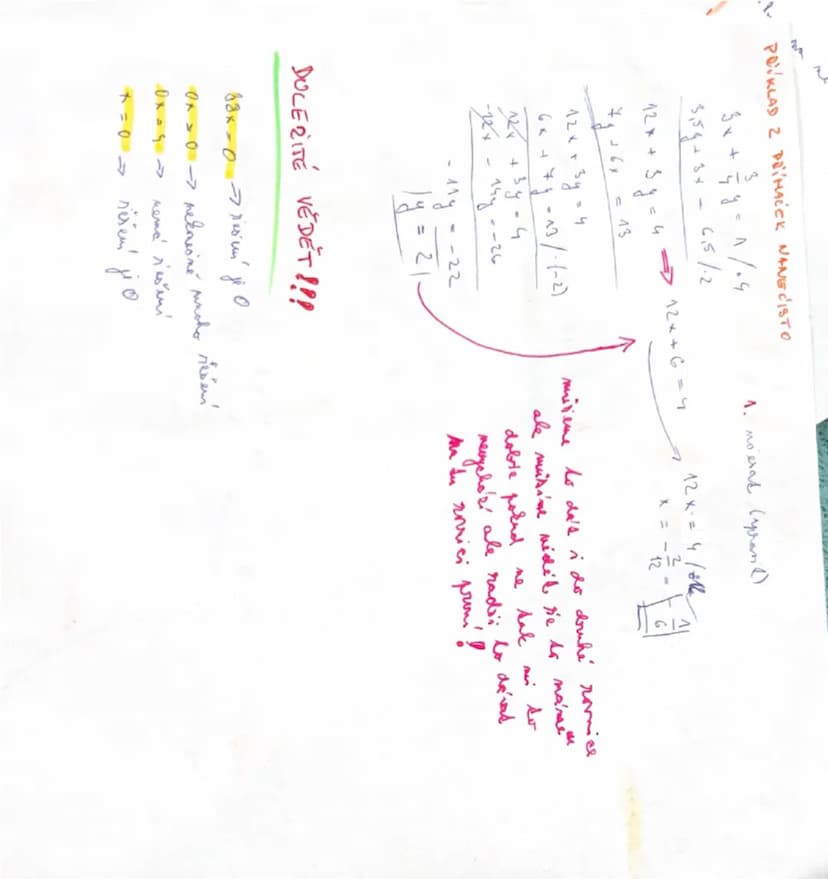 PŘÍKLAD Z PŘÍMAČEK NANEČISTO
1. násobit (upravit)
3x + 3/4 y = 1 / · 4
3,5y + 3x = 6,5 / · 2
12x + 3y = 4 ⇒ 12x + 6 = 4
7y + 6x = 13
12x = 4 /
x = - 2/12 = - 1/6
12x + 3y = 4
6x + 7y = 13 / · (-2)
12x + 3y = 4
-12x - 14y = -26
-11y = -22
y = 2
můžeme to dát i do druhé rovnice
ale musíme vědět že to máme
dobře pokud ne tak mi to
nevychází ale radši to dávat
na tu rovnici první!
DOLEŽITÉ VĚDĚT!!!
33x = 0 → řešení je 0
0x = 0 → nekonečně mnoho řešení
0x = 4 → nemá řešení
x = 0 → řešení je 0